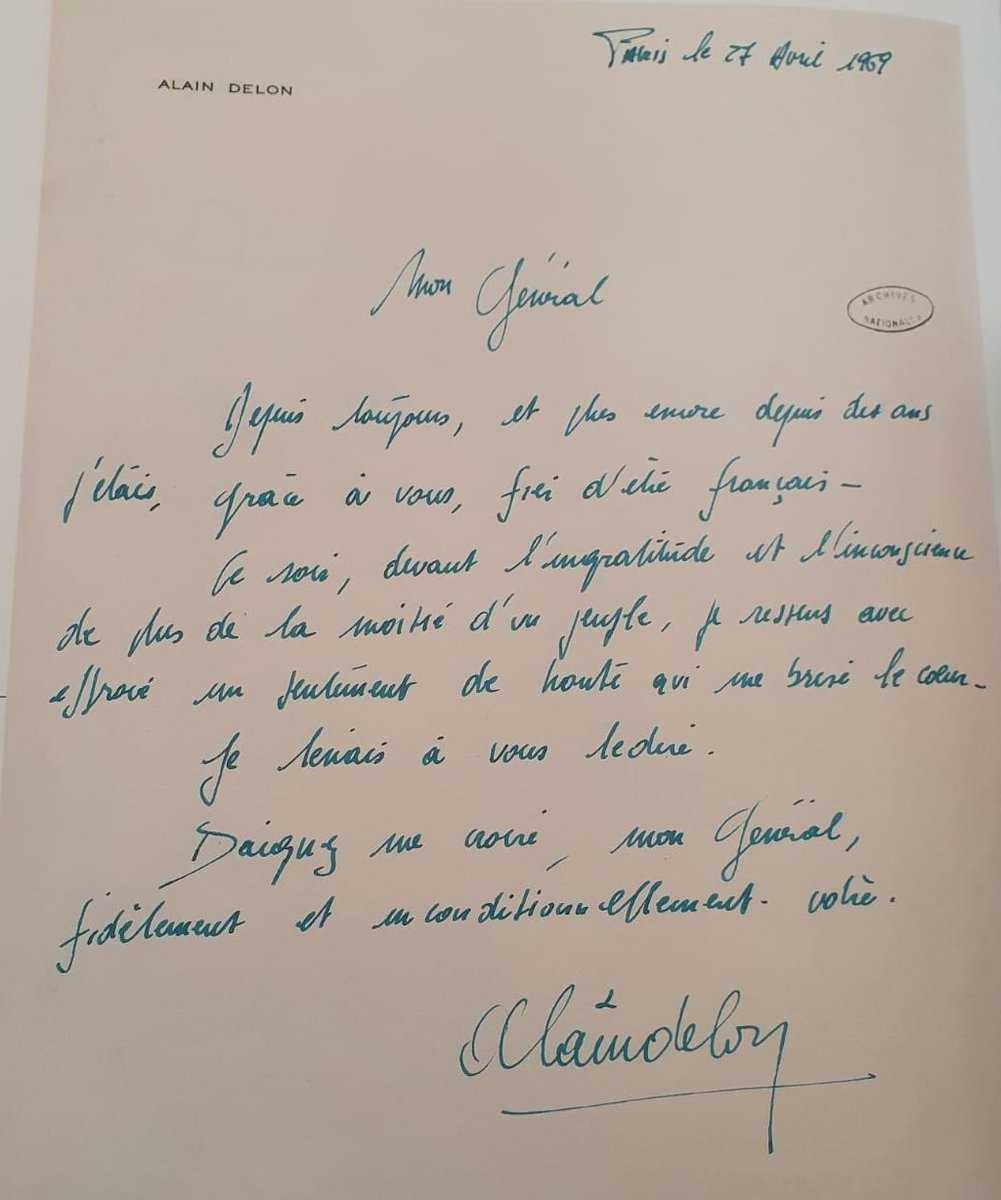 Paris le 27 Avril 1969
ALAIN DELON
Mon Général
ARCHIVES
NATIONALES
Depuis toujours, et plus encore depuis des ans
j'étais, grâce à vous, fier d'être français –
Ce soir, devant l'ingratitude et l'inconscience
de plus de la moitié d'un peuple, je ressens avec
effroi un sentiment de honte qui me brise le cœur –
Je tenais à vous le dire.
Daignez me croire, mon Général,
fidèlement et inconditionnellement. votre.
Alain delon